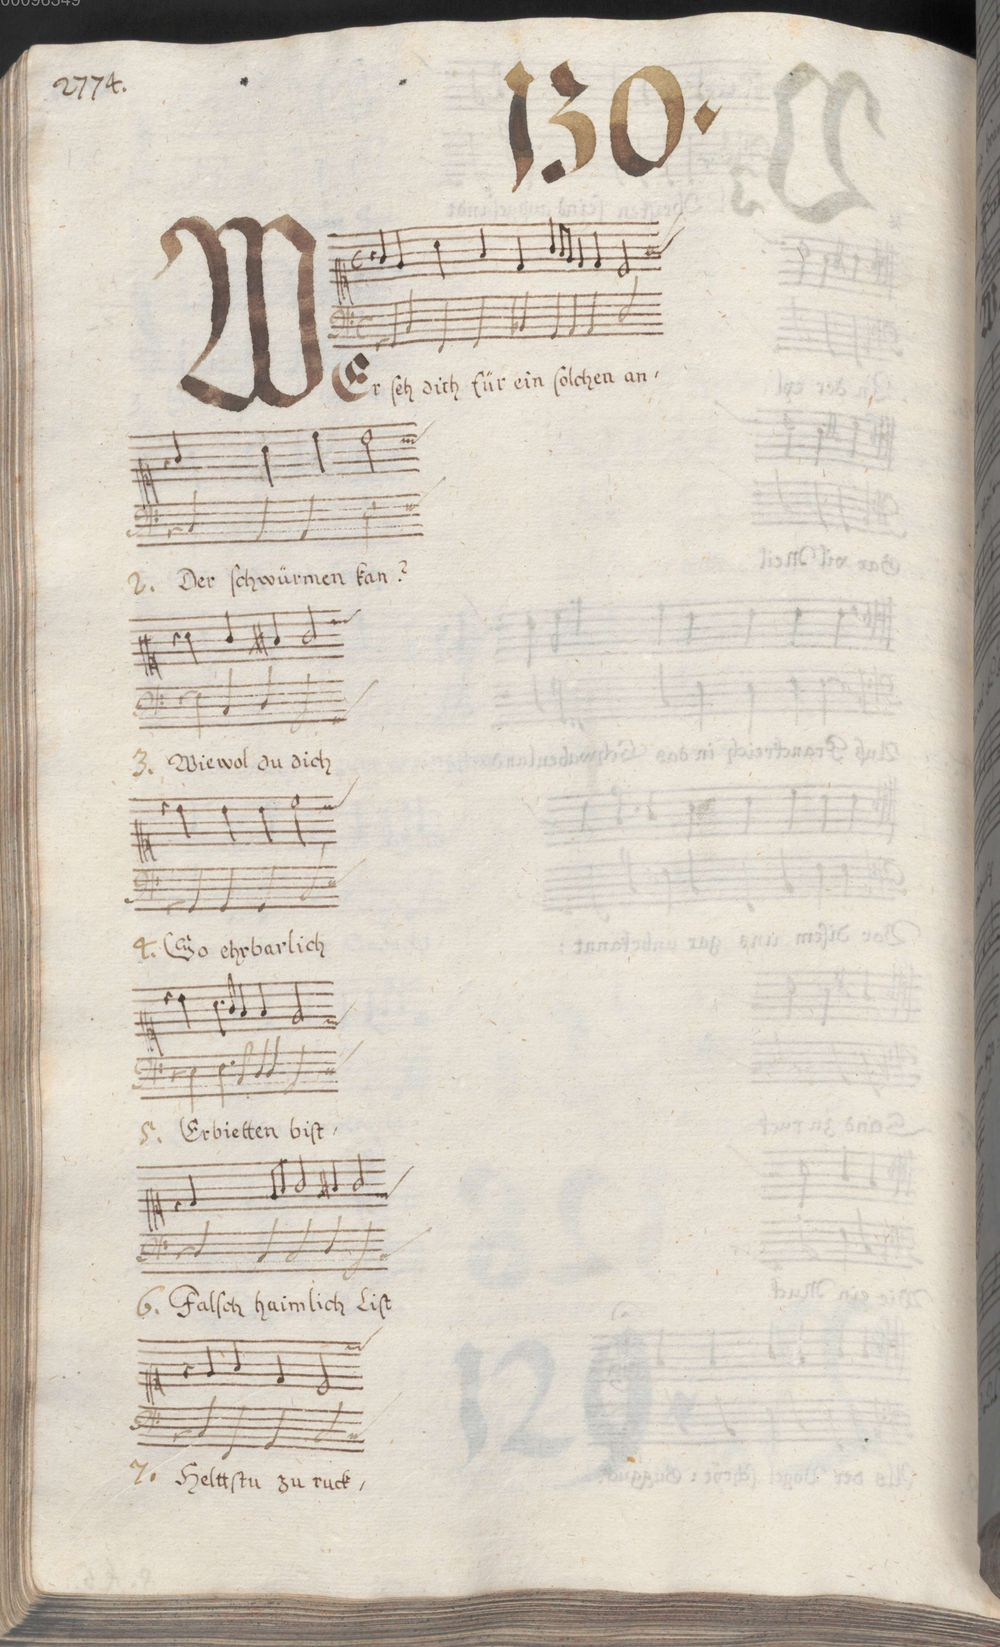 00096349
2774.
130.
WEr seh dich für ein solchen an,
2. Der schwürmen kan?
3. Wiewol du dich
4. So ehrbarlich
5. Erbietten bist,
6. Falsch haimlich List
7. Helttstu zu ruck,